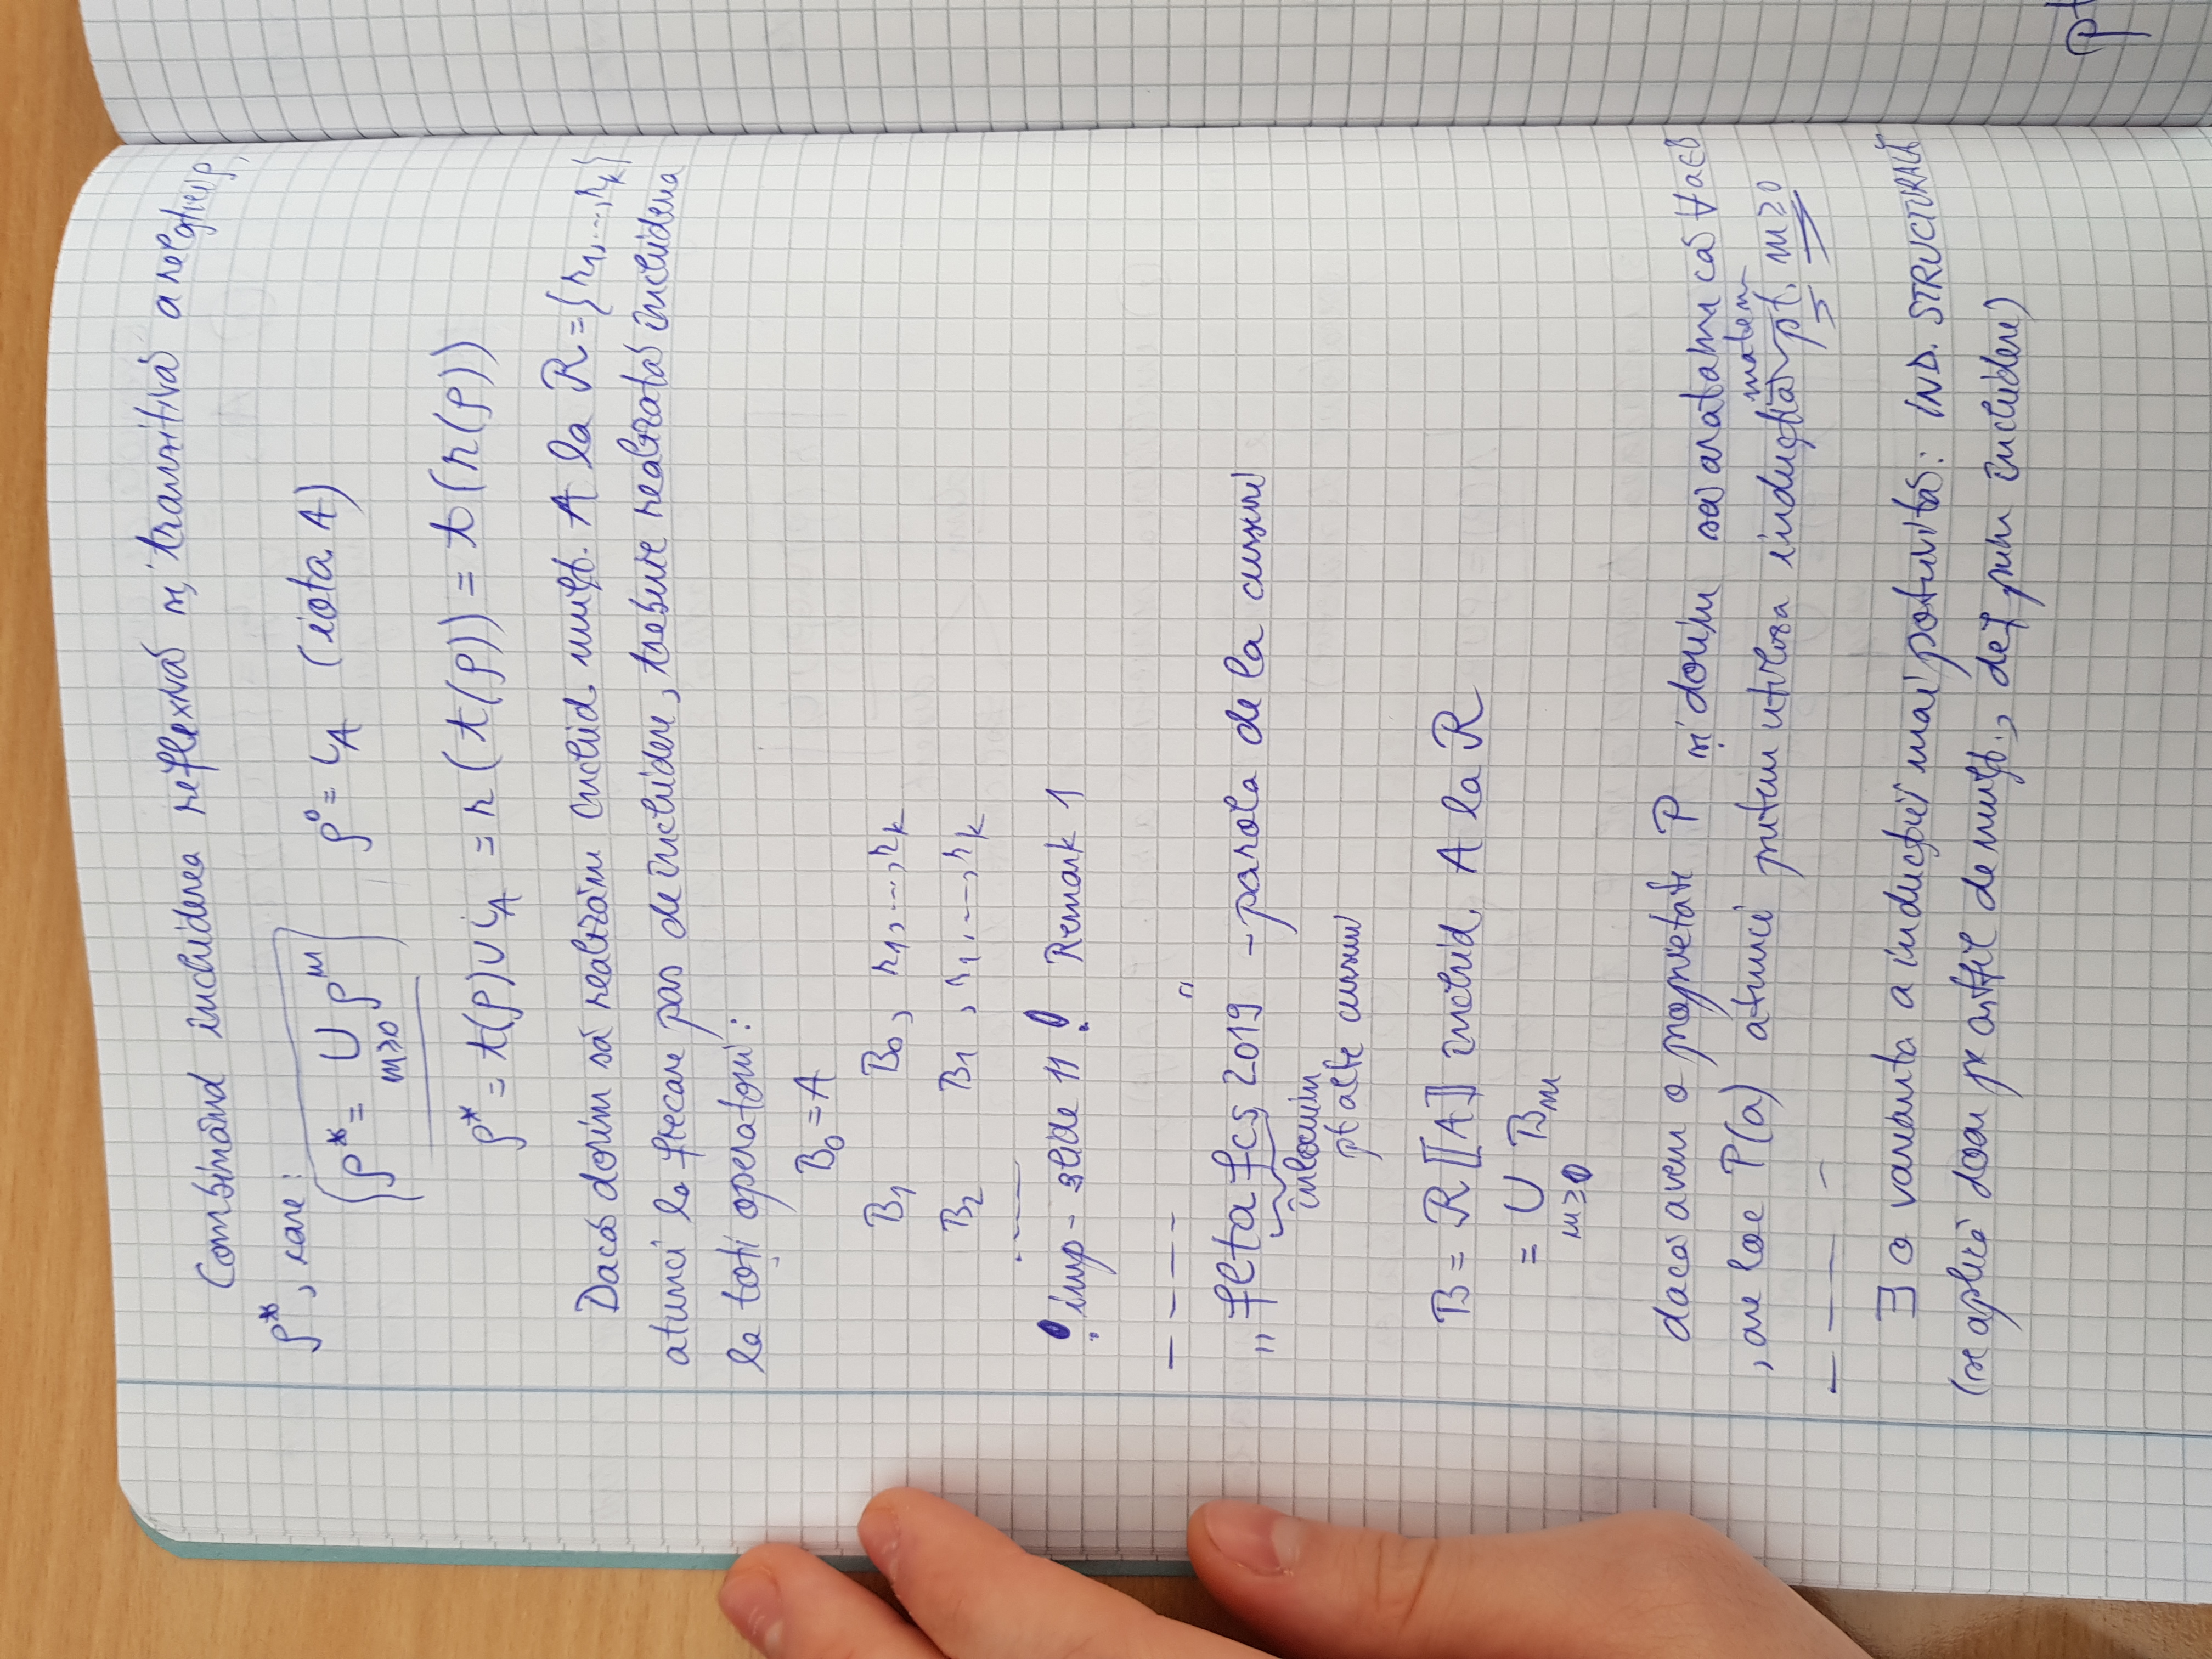 Combinând închiderea reflexivă și tranzitivă a relației ρ,
ρ*, care:
ρ* = ∪ ρᵐ    ρ⁰ = ι_A (iota A)
m≥0
ρ* = t(ρ) ∪ ι_A = r(t(ρ)) = t(r(ρ))
Dacă dorim să realizăm închid. mulț. A la R = {r₁,...,r_k}
atunci la fiecare pas de închidere, trebuie realizată închiderea
la toți operatorii:
B₀ = A
B₁    B₀, r₁,...,r_k
B₂    B₁, r₁,...,r_k
! imp - slide 11 ! Remark 1
„flta fcs 2019" - parola de la cursuri
înlocuim
pt alte cursuri
B = R⟦A⟧ închid. A la R
= ∪ Bₘ
m≥0
dacă avem o proprietate P și dorim să arătăm că ∀a∈B
, are loc P(a) atunci putem utiliza inducția matem pt. m≥0
∃ o varianta a inducției mai potrivită: IND. STRUCTURALĂ
(se aplică doar pe astfel de mulț., def prin închidere)
pt